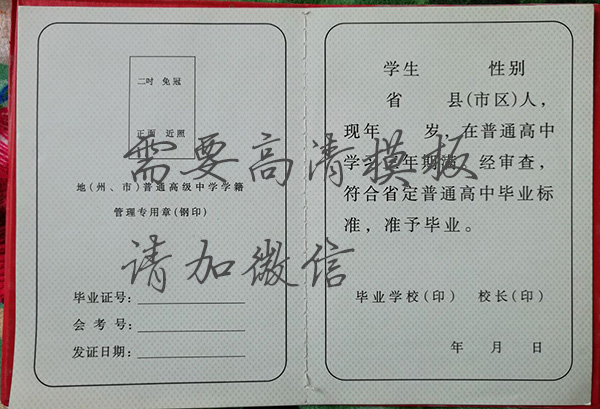 二吋 免冠
正面 近照
地(州、市)普通高级中学学籍
管理专用章(钢印)
毕业证号:
会考号:
发证日期:
学生 性别
省 县(市区)人,
现年 岁,在普通高中
学习 年期满,经审查,
符合省定普通高中毕业标
准,准予毕业。
毕业学校(印) 校长(印)
年 月 日
需要高清模板
请加微信